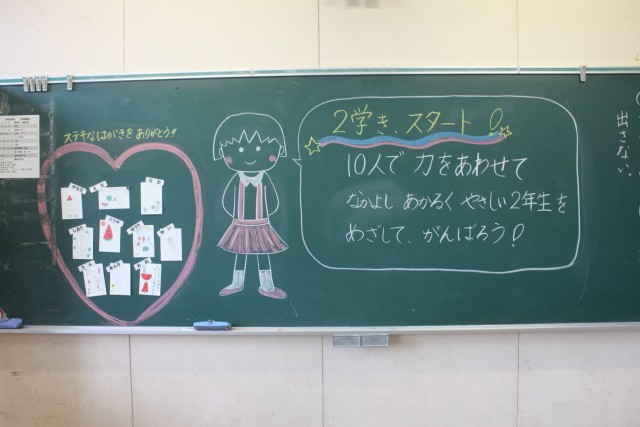 ステキなはがきを ありがとう!!
2学き、スタート!
10人で 力をあわせて
なかよし あかるく やさしい2年生を
めざして、がんばろう!
出さない